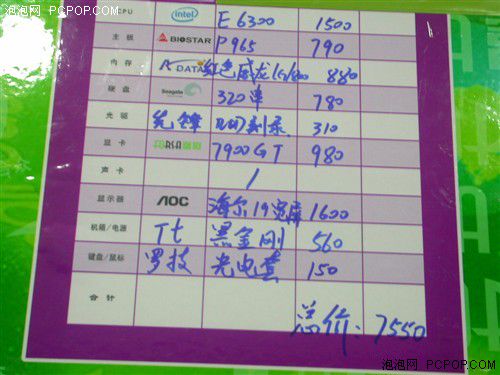 泡泡网 PCPOP.COM
CPU intel E6300 1500
主板 BIOSTAR P965 790
内存 ADATA 红色威龙1G/800 880
硬盘 Seagate 320串 780
光驱 先锋 刻录 310
显卡 ASA 7900GT 980
声卡 /
显示器 AOC 海尔19宽屏 1600
机箱/电源 Tt 黑金刚 560
键盘/鼠标 罗技 光电套 150
合计 总价:7550
泡泡网 PCPOP.COM